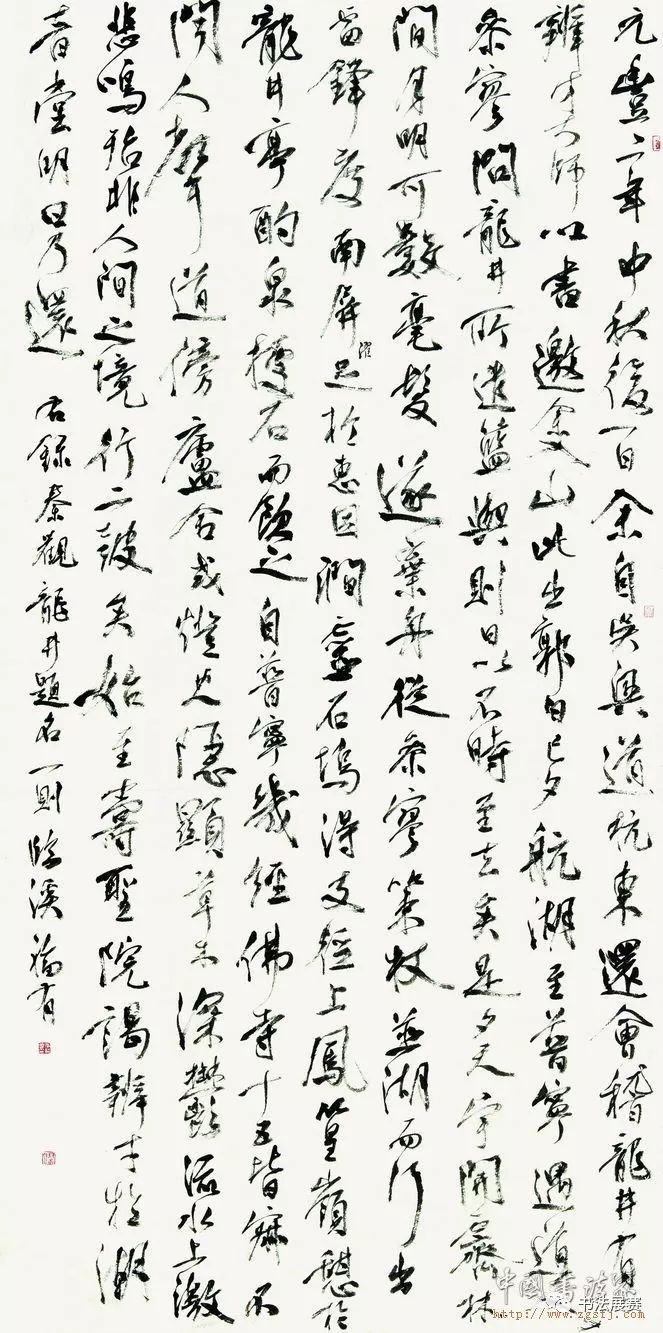 元豐二年中秋後一日余自吳興道杭東還會稽龍井有
辯才大師以書邀余入山比出郭日已夕航湖至普寧遇道人
參寥問龍井所遣籃輿則曰以不時至去矣是夕天宇開霽林
間月明可數毫髮遂棄舟從參寥策杖並湖而行出
雷峰度南屏濯足於惠因澗靈石塢得支徑上風篁嶺憩於
龍井亭酌泉據石而飲之自普寧幾經佛寺十五皆寂不
聞人聲道傍廬舍或燈火隱顯草木深鬱流水上激
悲鳴殆非人間之境行二鼓矣始至壽聖院謁辯才於潮
音堂明日乃還 右錄秦觀龍井題名一則
中國書法
书法展赛
http://www.zgsfj.com